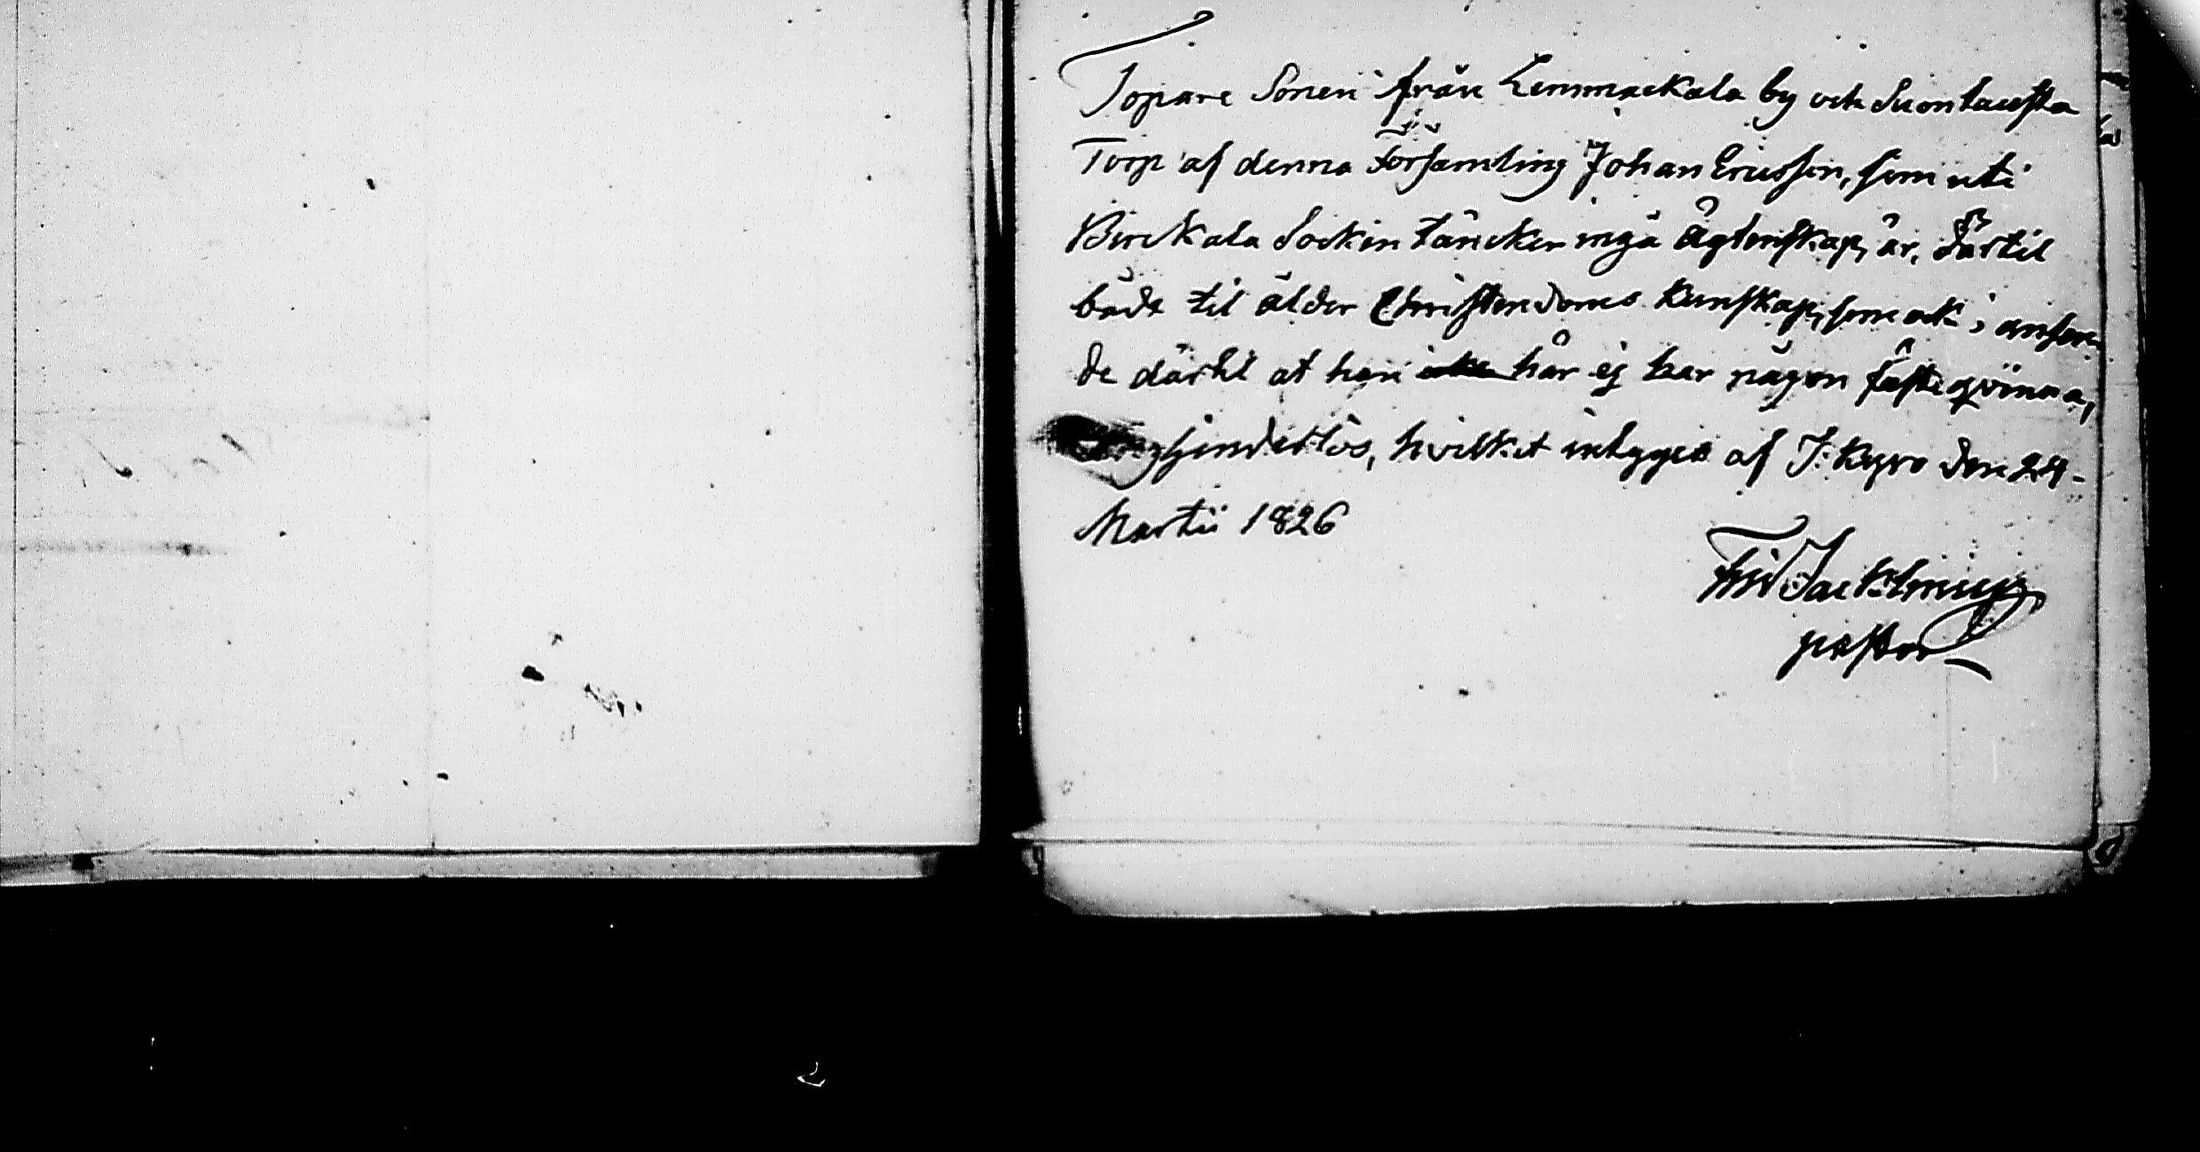 Torpare Sonen från Lemmackala by och Suontausta
Torp af denna Församling Johan Ericsson, som uti
Birckala Sockin täncker ingå Ägtenskap, är, därtil
både til ålder Christendoms kunskap, som ock i anseen
de därtil at han här ej har någon fästeqvinna,
hinderlös, hvilket intygges af T: Kyro den 24
Martii 1826
pastor